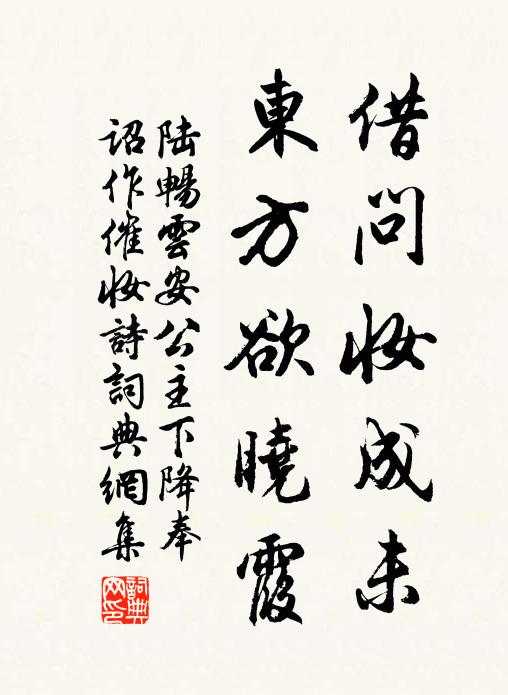 借问妆成未
東方欲曉霞
陆暢雲安公主下降奉
诏作催妆詩詞典網集
詞典网印